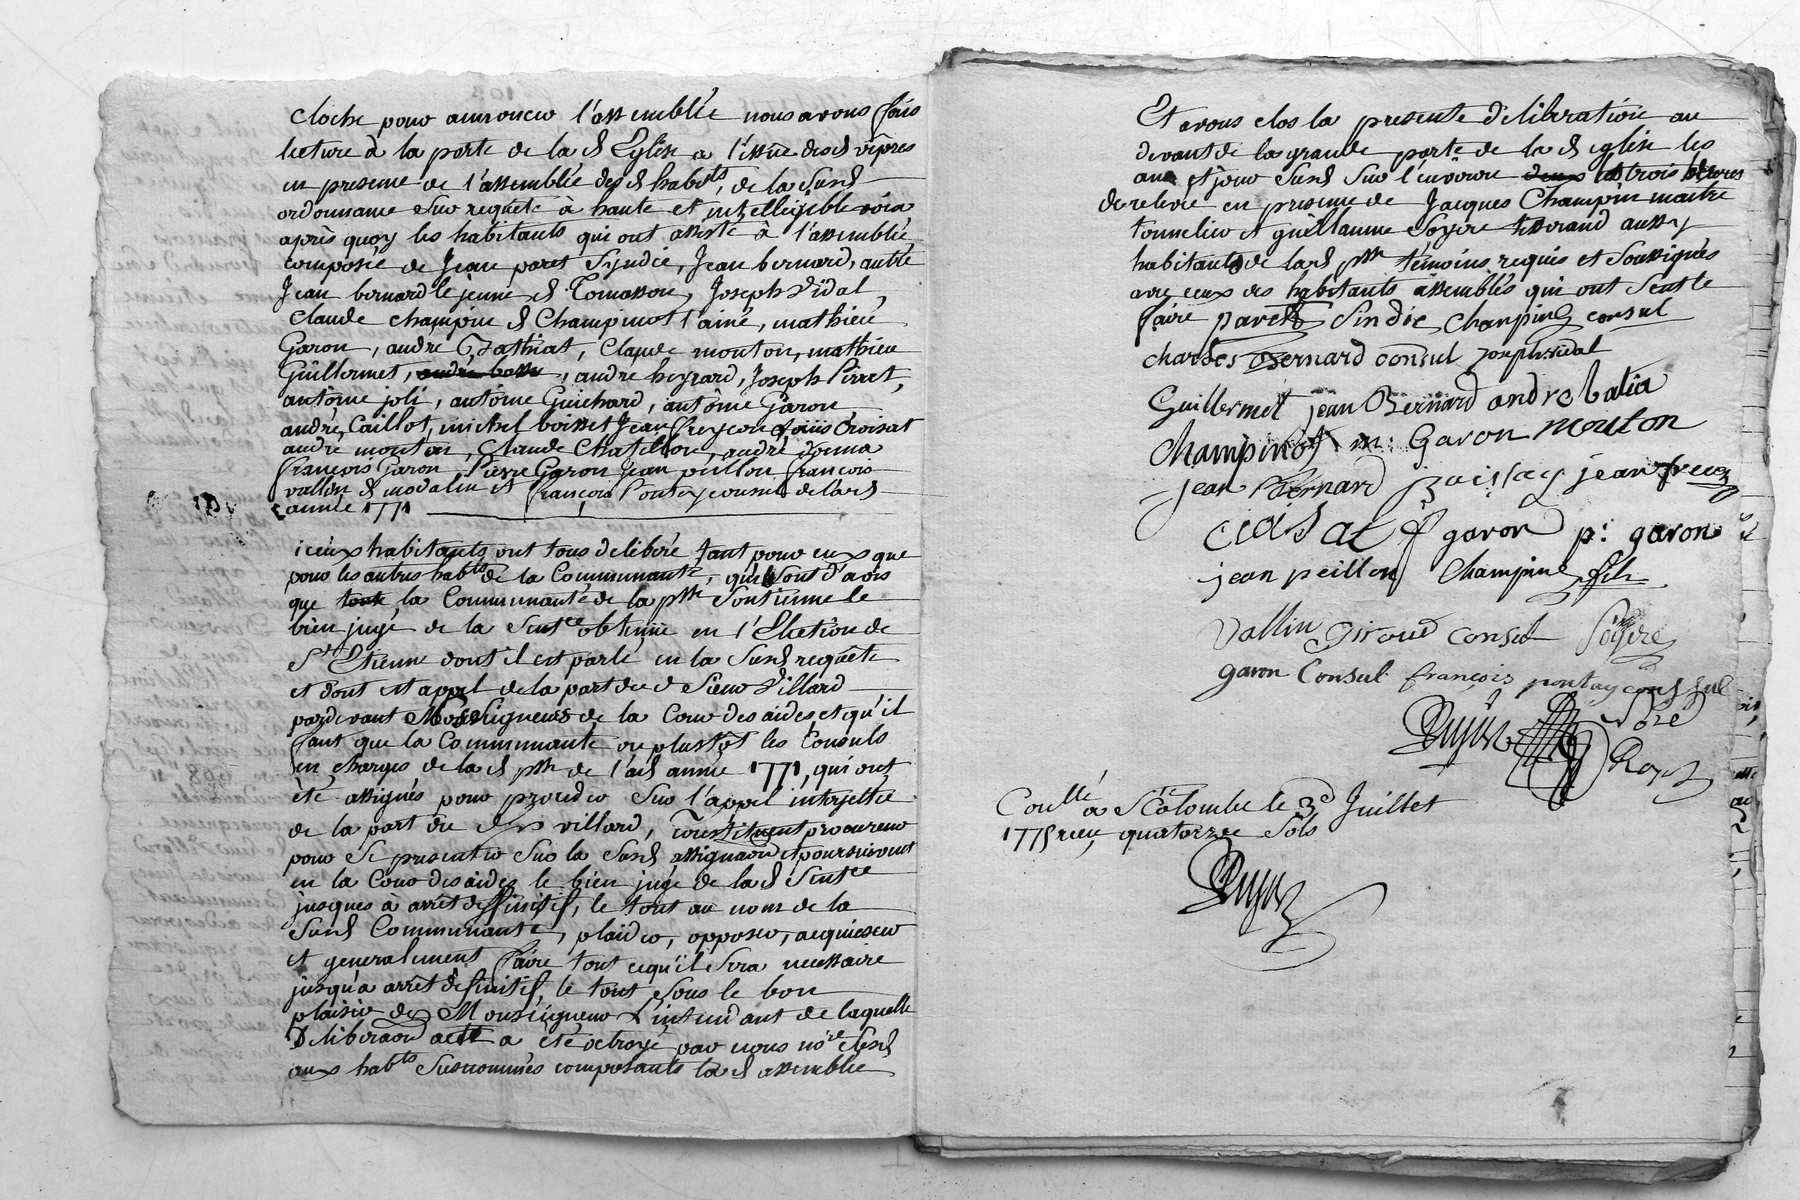 cloche pour annoncer l'assemblée nous avons fais
lecture à la porte de la d Eglise a l'issüe desd vêpres
en presence de l'assemblée des d habits, de la susd
ordonnance sur requete à haute et intelligible voix
après quoy les habitants qui ont assisté à l'assemblée
composée de Jean paret Sijndic, Jean bernard, autre
Jean bernard le jeune d Tomasson, Joseph Vidal,
Claude champin d Champinot l'ainé, mathieu
Garon, andré Bathiat, Claude mouton, mathieu
Guillermet, andré heyrard, Joseph Pirret,
antoine joli, antoine Guichard, antoine Garon
andré Caillot, michel boisset Jean freycon Louis Croisat
andré mouton, Claude Chatillon, andré
françois Garon Pierre Garon Jean peillon francois
vallin d modalin et françois Pontey consuls de lad
année 1771
iceux habitants ont tous deliberé tant pour eux que
pour les autres habts de la Communauté, qu'ils sont d'avis
que la Communauté de la psse soutienne le
bien jugé de la Sentce obtenüe en l'Election de
St Etienne dont il est parlé en la susd requete
et dont est appel de la part dud Sieur Villard
pardevant Messeigneurs de la Cour des aides et qu'il
faut que la Communauté ou plustost les Consuls
en charges de la d psse de l'ad année 1771, qui ont
été assignés pour proceder sur l'appel interjetté
de la part du d Sr villard, constituent procureur
pour se presenter sur la susd assignaon et poursuivent
en la Cour des aides le bien jugé de la d Sentce
jusques à arrêt deffinitif, le tout au nom de la
susd Communauté, plaider, opposer, acquiescer
et generalement faire tout cequ'il sera necessaire
jusqu'a arrêt definitif, le tout sous le bon
plaisir de Monseigneur L'intendant de laquelle
Deliberaon acte a été octroyé par nous nore Susd
aux habts susnommés composants la d assemblée
Et avons clos la presente déliberation au
devant de la grande porte de la d eglise les
an et jour susd sur l'environ les trois heures
de relevée en presence de Jacques Champin maitre
tonnelier et guillaume Soyere tisserand aussy
habitants de lad psse témoins requis et soussignés
avec ceux des habitants assemblés qui ont sçut le
faire paret Sindic Champin consul
charles Bernard consul Joseph vidal
Guillermet jean Bernard andre batia
Champinot m: Garon mouton
jean Bernard jean frecon
croisat f garon p: garon
jean peillon Champin fils
Vallin Giroud consul Soyere
garon Consul françois pontay conssul
Dujast Nore Royal
Conllé à Ste Colombe le 3e Juillet
1775 reçu quatorze sols
Dujast